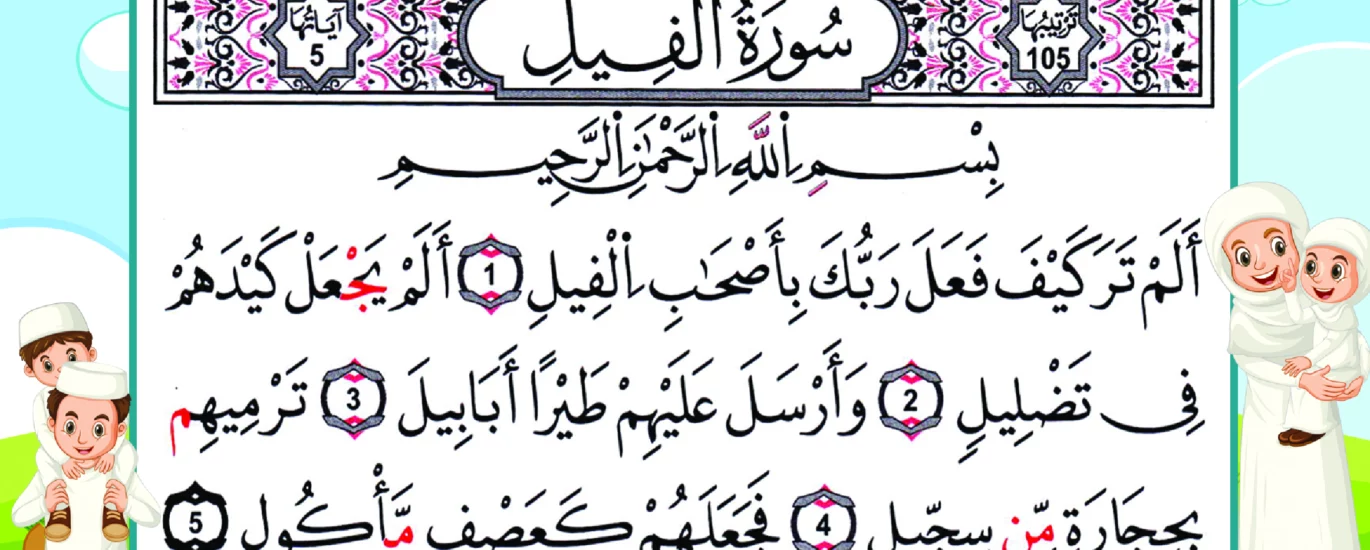 تَرْتِيبُهَا 105 سُورَةُ الْفِيلِ آيَاتُهَا 5
بِسْمِ اِ۬للَّهِ اِ۬لرَّحْمَٰنِ اِ۬لرَّحِيمِ
أَلَمْ تَرَ كَيْفَ فَعَلَ رَبُّكَ بِأَصْحَٰبِ اِ۬لْفِيلِ 1 أَلَمْ يَجْعَلْ كَيْدَهُمْ
فِى تَضْلِيلٍ 2 وَأَرْسَلَ عَلَيْهِمْ طَيْرًا أَبَابِيلَ 3 تَرْمِيهِم
بِحِجَارَةٍ مِّن سِجِّيلٍ 4 فَجَعَلَهُمْ كَعَصْفٍ مَّأْكُولٍ 5